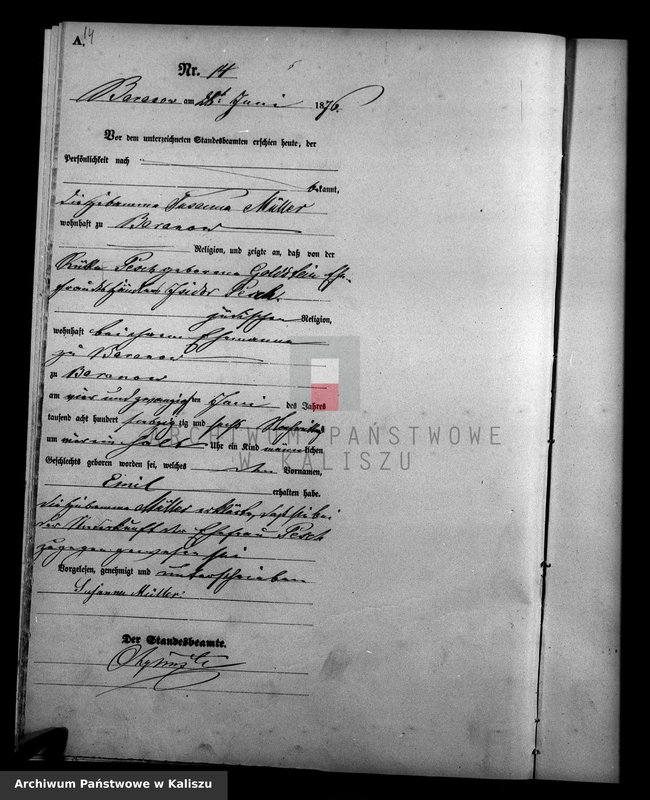 14
A.
Nr. 14
Baranow am 28t. Juni 1876.
Vor dem unterzeichneten Standesbeamten erschien heute, der
Persönlichkeit nach
bekannt,
die Hebamme Susanna Müller
wohnhaft zu Baranow
Religion, und zeigte an, daß von der
Pesch geborene Goldstein Ehe-
frau des Händlers Isidor Pesch,
jüdischen Religion,
wohnhaft bei ihrem Ehemanne
zu Baranow
zu Baranow
am vier und zwanzigsten Juni des Jahres
tausend acht hundert siebzig zig und sechs Nachmittags
um vier ein halb Uhr ein Kind männlichen
Geschlechts geboren worden sei, welches den Vornamen,
Emil
erhalten habe.
Die Hebamme Müller erklärte, daß sie bei
der Niederkunft der Ehefrau Pesch
zugegen gewesen sei
Vorgelesen, genehmigt und unterschrieben
Susanna Müller
Der Standesbeamte.
ARCHIWUM PAŃSTWOWE
W KALISZU
Archiwum Państwowe w Kaliszu